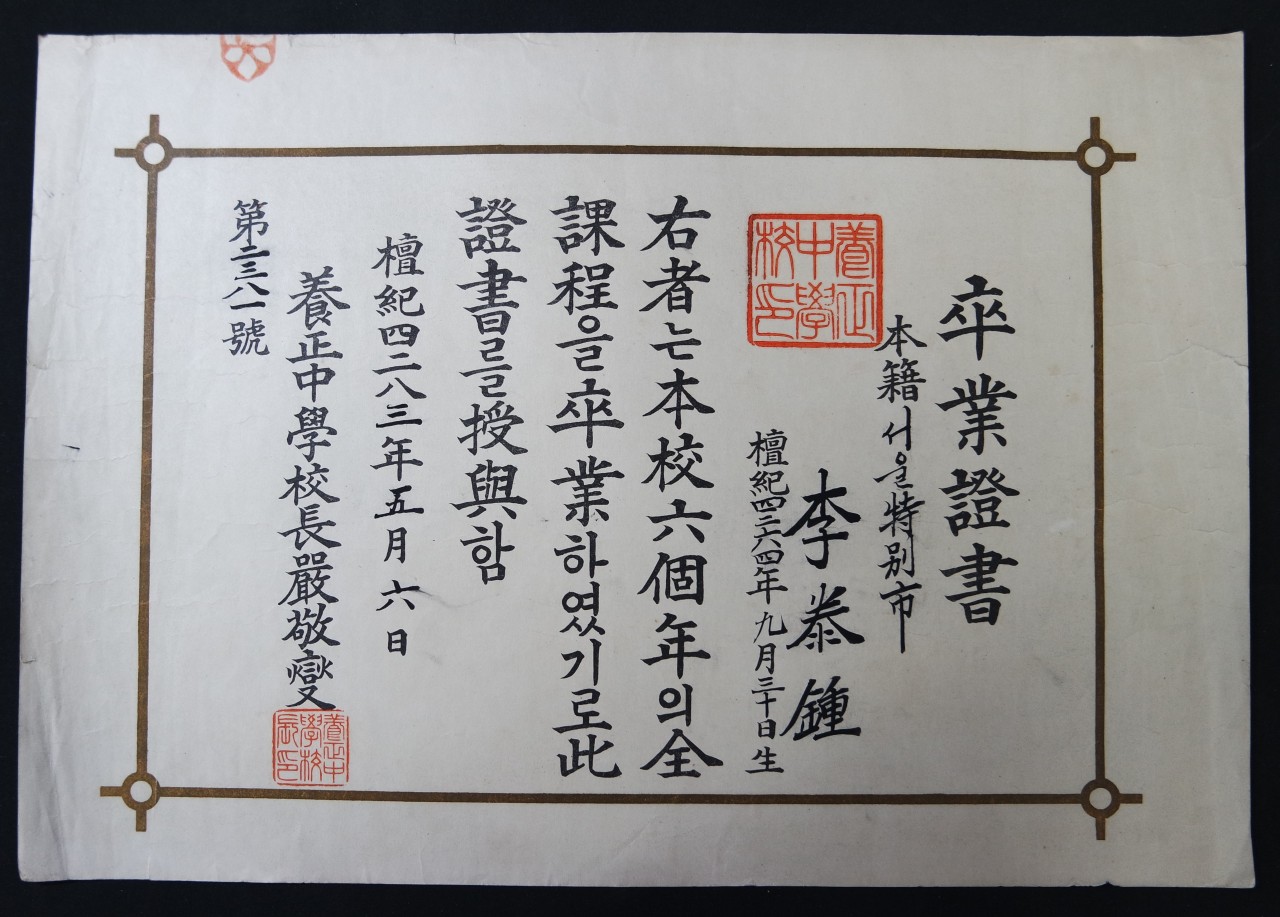 卒業證書
本籍 서울特別市
李泰鍾
檀紀四二六四年九月三十日生
養正中學校印
右者는本校六個年의全
課程을卒業하였기로此
證書를授與함
檀紀四二八三年五月六日
養正中學校長嚴敬燮
養正中學校長印
第二三八一號